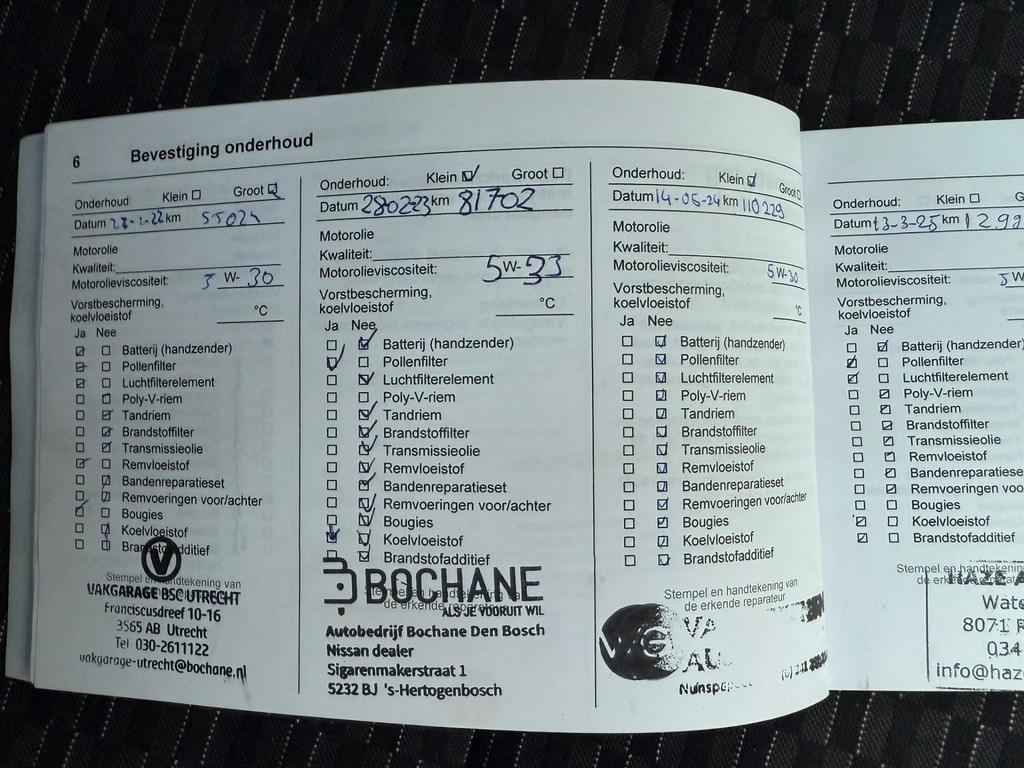 6 Bevestiging onderhoud
Onderhoud: Klein Groot
Datum km 55024
Motorolie
Kwaliteit:
Motorolieviscositeit: 5 W- 30
Vorstbescherming,
koelvloeistof °C
Ja Nee
Batterij (handzender)
Pollenfilter
Luchtfilterelement
Poly-V-riem
Tandriem
Brandstoffilter
Transmissieolie
Remvloeistof
Bandenreparatieset
Remvoeringen voor/achter
Bougies
Koelvloeistof
Brandstofadditief
Stempel en handtekening van
VAKGARAGE BSC UTRECHT
Franciscusdreef 10-16
3565 AB Utrecht
Tel 030-2611122
vakgarage-utrecht@bochane.nl
Onderhoud: Klein Groot
Datum 280223 km 81702
Motorolie
Kwaliteit:
Motorolieviscositeit: 5 W-
Vorstbescherming,
koelvloeistof °C
Ja Nee
Batterij (handzender)
Pollenfilter
Luchtfilterelement
Poly-V-riem
Tandriem
Brandstoffilter
Transmissieolie
Remvloeistof
Bandenreparatieset
Remvoeringen voor/achter
Bougies
Koelvloeistof
Brandstofadditief
BOCHANE
ALS JE VOORUIT WIL
de erkende reparateur
Autobedrijf Bochane Den Bosch
Nissan dealer
Sigarenmakerstraat 1
5232 BJ 's-Hertogenbosch
Onderhoud: Klein Groot
Datum 14-05-24 km 110229
Motorolie
Kwaliteit:
Motorolieviscositeit: 5 W- 30
Vorstbescherming,
koelvloeistof °C
Ja Nee
Batterij (handzender)
Pollenfilter
Luchtfilterelement
Poly-V-riem
Tandriem
Brandstoffilter
Transmissieolie
Remvloeistof
Bandenreparatieset
Remvoeringen voor/achter
Bougies
Koelvloeistof
Brandstofadditief
Stempel en handtekening van
de erkende reparateur
Onderhoud: Klein
Datum 13-3-25 km
Motorolie
Kwaliteit:
Motorolieviscositeit: 5 W
Vorstbescherming,
koelvloeistof
Ja Nee
Batterij (handzender)
Pollenfilter
Luchtfilterelement
Poly-V-riem
Tandriem
Brandstoffilter
Transmissieolie
Remvloeistof
Bandenreparatiese
Remvoeringen voo
Bougies
Koelvloeistof
Brandstofadditief
Stempel en handtekenin
HAZE A
Wate
8071
034
info@haz